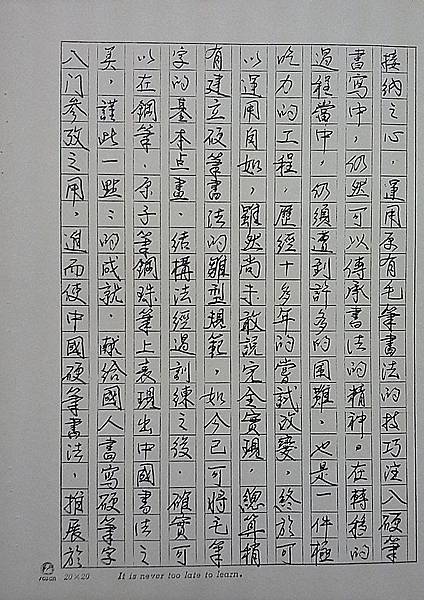 接納之心，運用原有毛筆書法的技巧注入硬筆
書寫中，仍然可以傳承書法的精神。在轉移的
過程當中，仍須遭到許多的困難，也是一件極
吃力的工程，歷經十多年的嘗試改變，終於可
以運用自如，雖然尚未敢說完全實現，總算稍
有建立硬筆書法的雛型規範，如今已可將毛筆
字的基本点畫．結構法經過訓練之後．確實可
以在鋼筆．原子筆鋼珠筆上表現出中國書法之
美，謹此一點ミ的成就．献給國人書寫硬筆字
入门參攷之用，進而使中國硬筆書法，推展於
20×20 It is never too late to learn.